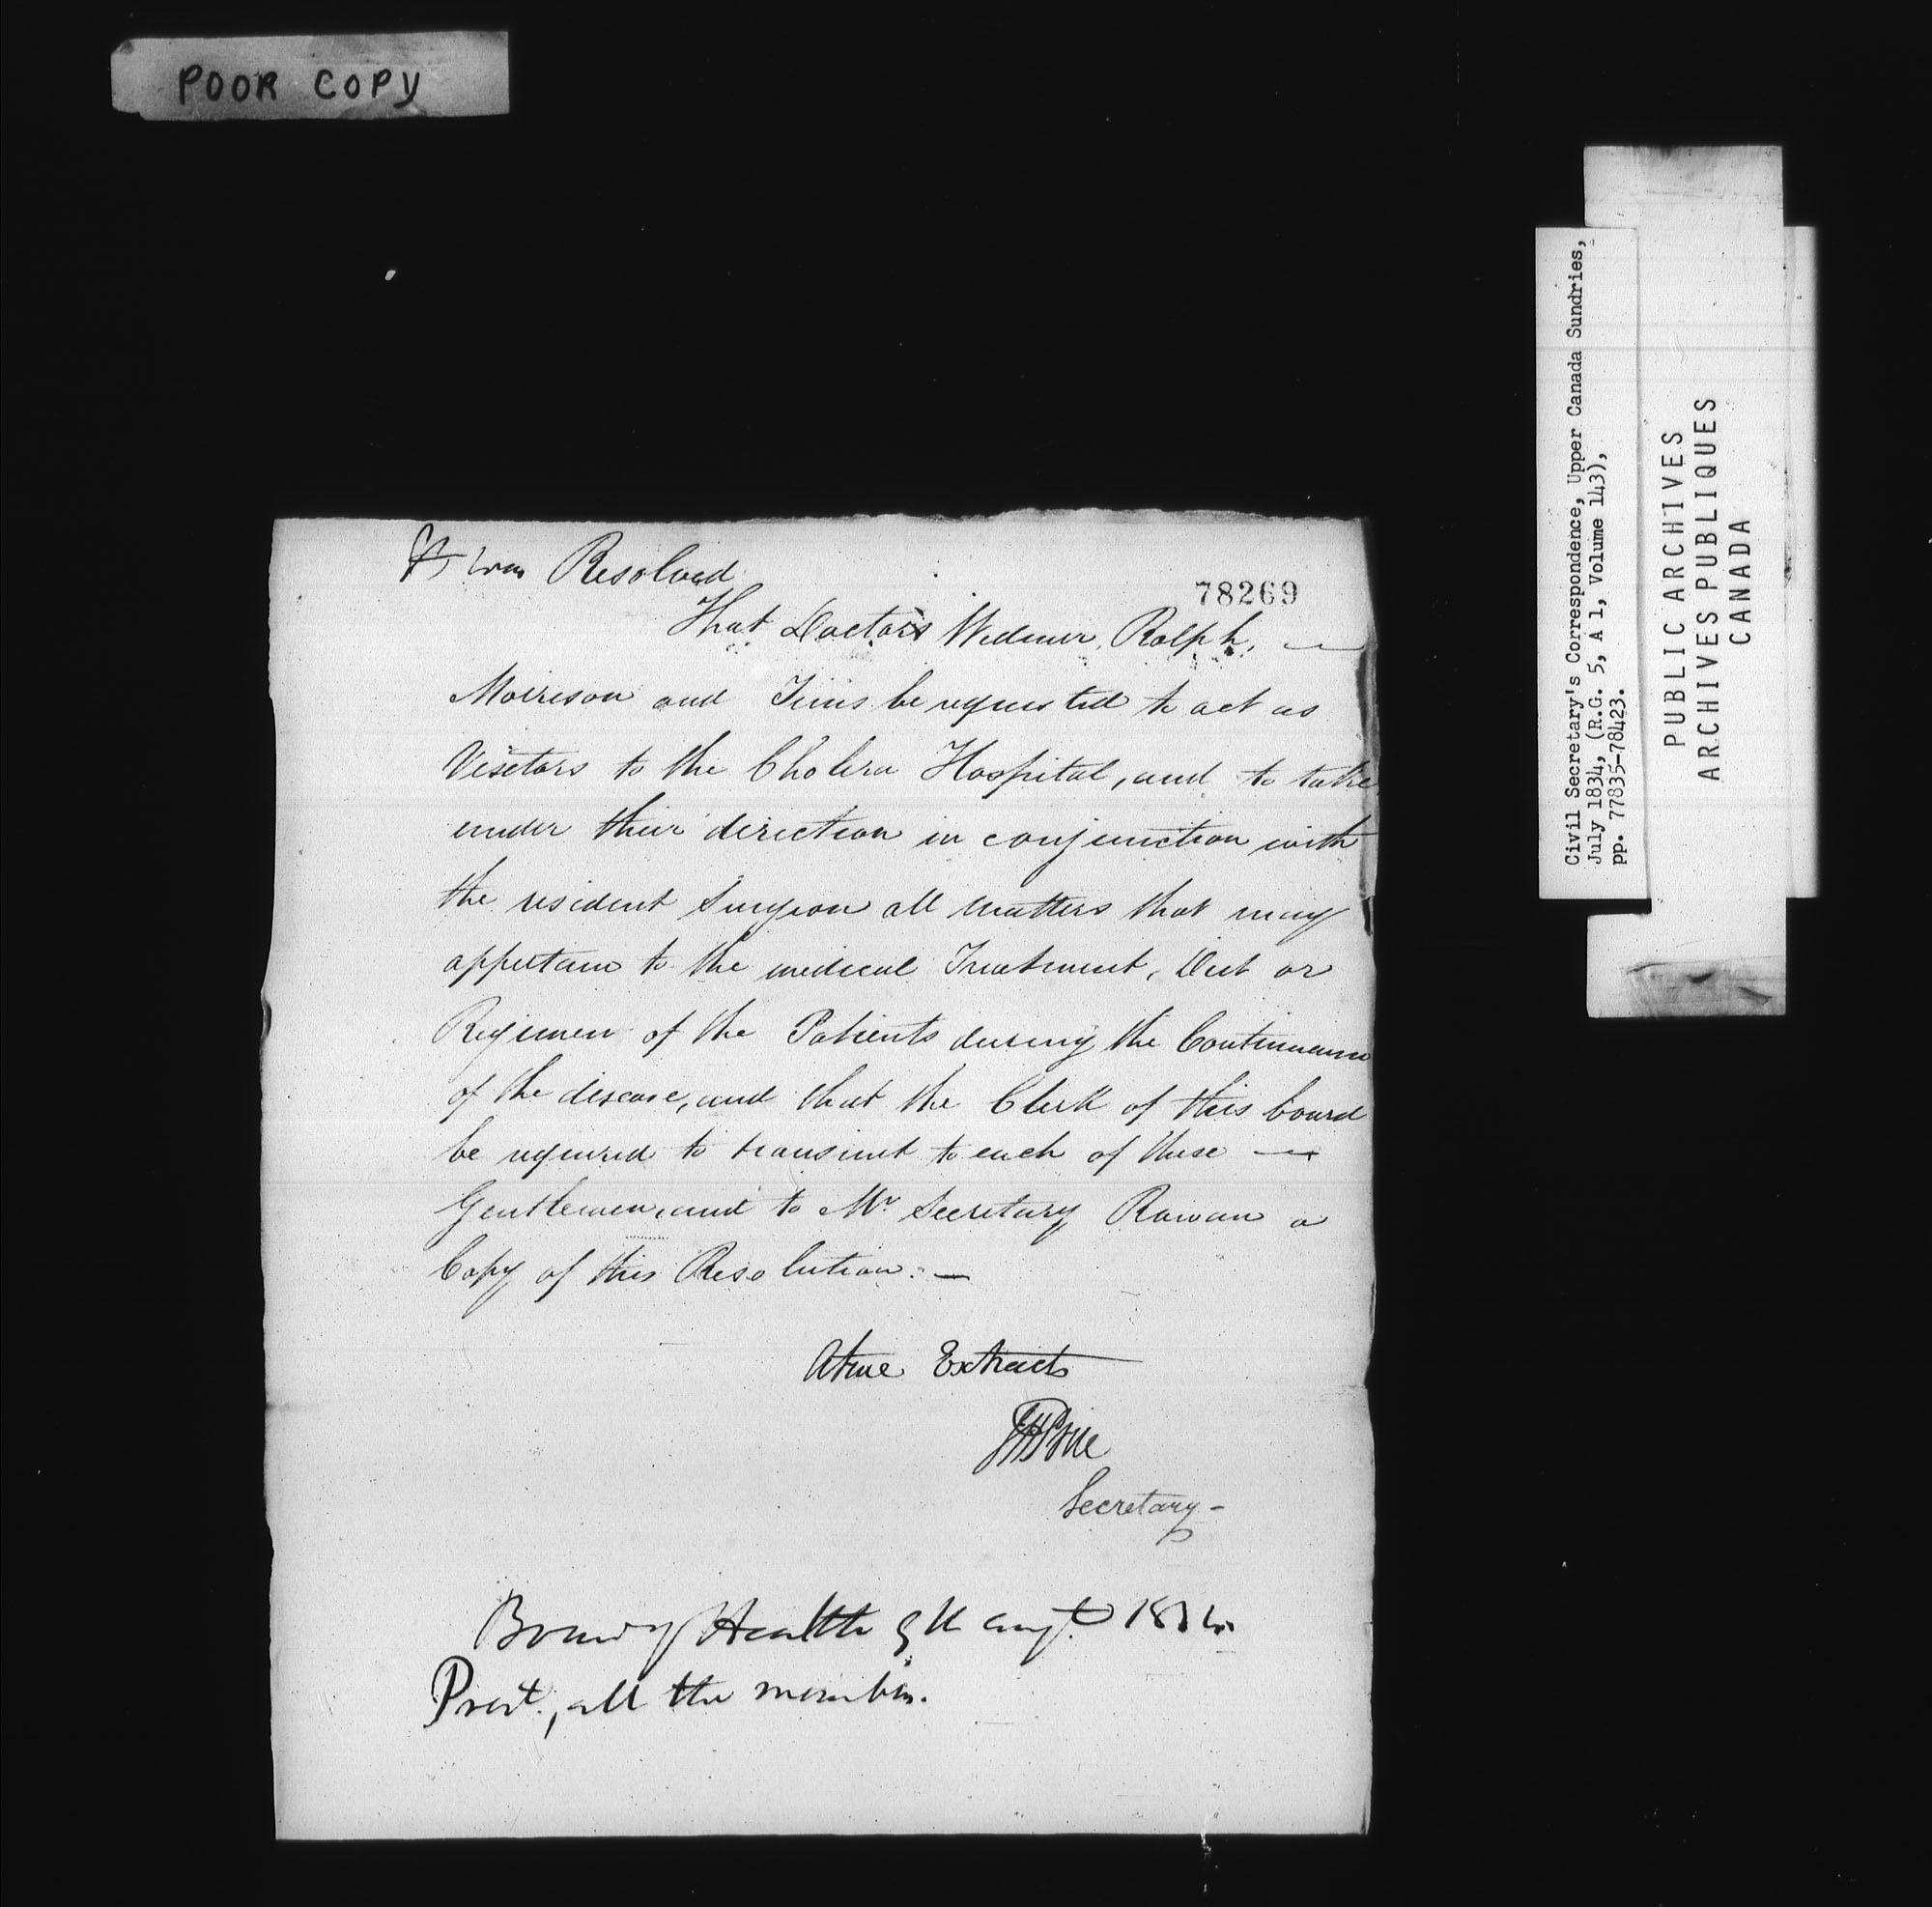 POOR COPY
It was Resolved
78269
That Doctors Widmer, Rolph, —
Morrison and Tims be requested to act as
Visitors to the Cholera Hospital, and to take
under their direction in conjunction with
the resident Surgeon all matters that may
appertain to the medical Treatment, Diet or
Regimen of the Patients during the Continuance
of the disease, and that the Clerk of this board
be required to transmit to each of these —
Gentlemen, and to Mr. Secretary Rowan a
Copy of this Resolution. —
A true Extract
Secretary -
Board of Health 9th Augt. 1834
Prest., all the members.
Civil Secretary's Correspondence, Upper Canada Sundries,
July 1834, (R.G. 5, A 1, Volume 143),
pp. 77835-78423.
PUBLIC ARCHIVES
ARCHIVES PUBLIQUES
CANADA